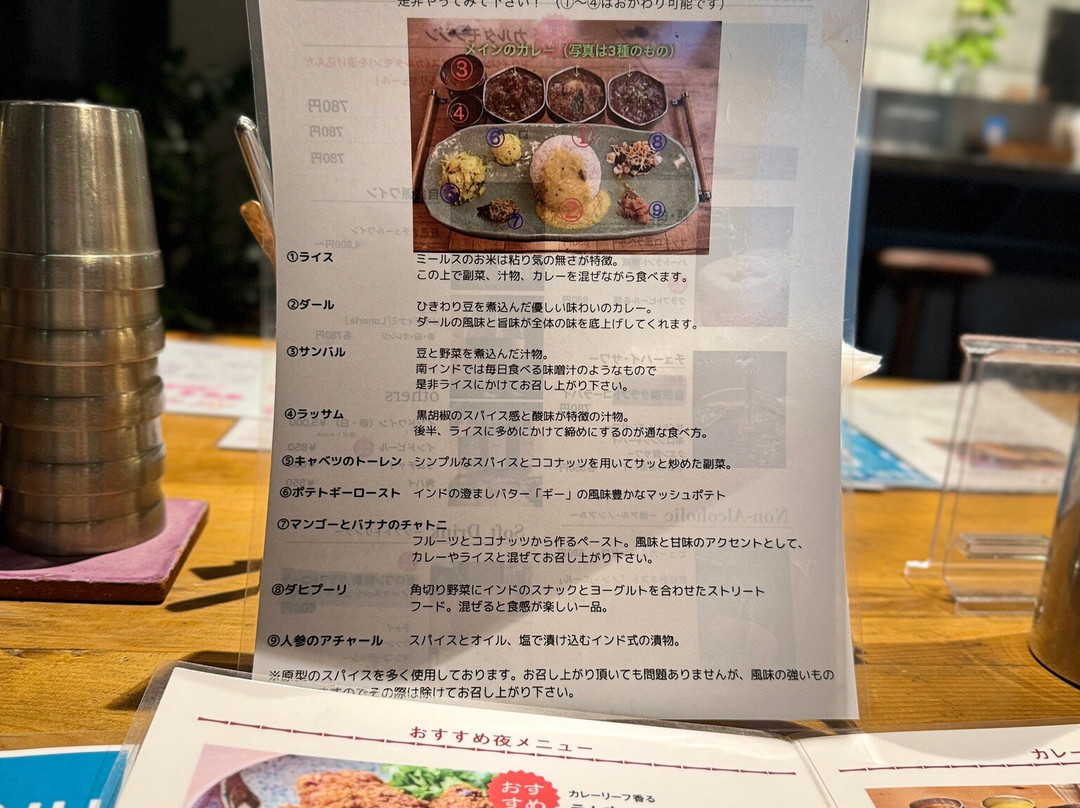 是非やってみて下さい！（①～④はおかわり可能です）
メインのカレー（写真は3種のもの）
③
④
⑥
①
⑧
⑤
②
⑦
⑨
①ライス ミールスのお米は粘り気の無さが特徴。
この上で副菜、汁物、カレーを混ぜながら食べます。
②ダール ひきわり豆を煮込んだ優しい味わいのカレー。
ダールの風味と旨味が全体の味を底上げしてくれます。
③サンバル 豆と野菜を煮込んだ汁物。
南インドでは毎日食べる味噌汁のようなもので
是非ライスにかけてお召し上がり下さい。
④ラッサム 黒胡椒のスパイス感と酸味が特徴の汁物。
後半、ライスに多めにかけて締めにするのが通な食べ方。
⑤キャベツのトーレン シンプルなスパイスとココナッツを用いてサッと炒めた副菜。
⑥ポテトギーロースト インドの澄ましバター「ギー」の風味豊かなマッシュポテト
⑦マンゴーとバナナのチャトニ
フルーツとココナッツから作るペースト。風味と甘味のアクセントとして、
カレーやライスと混ぜてお召し上がり下さい。
⑧ダヒプーリ 角切り野菜にインドのスナックとヨーグルトを合わせたストリート
フード。混ぜると食感が楽しい一品。
⑨人参のアチャール スパイスとオイル、塩で漬け込むインド式の漬物。
※原型のスパイスを多く使用しております。お召し上がり頂いても問題ありませんが、風味の強いもの
ますのでその際は除けてお召し上がり下さい。
おすすめ夜メニュー
おす
すめ
カレーリーフ香る
カレー